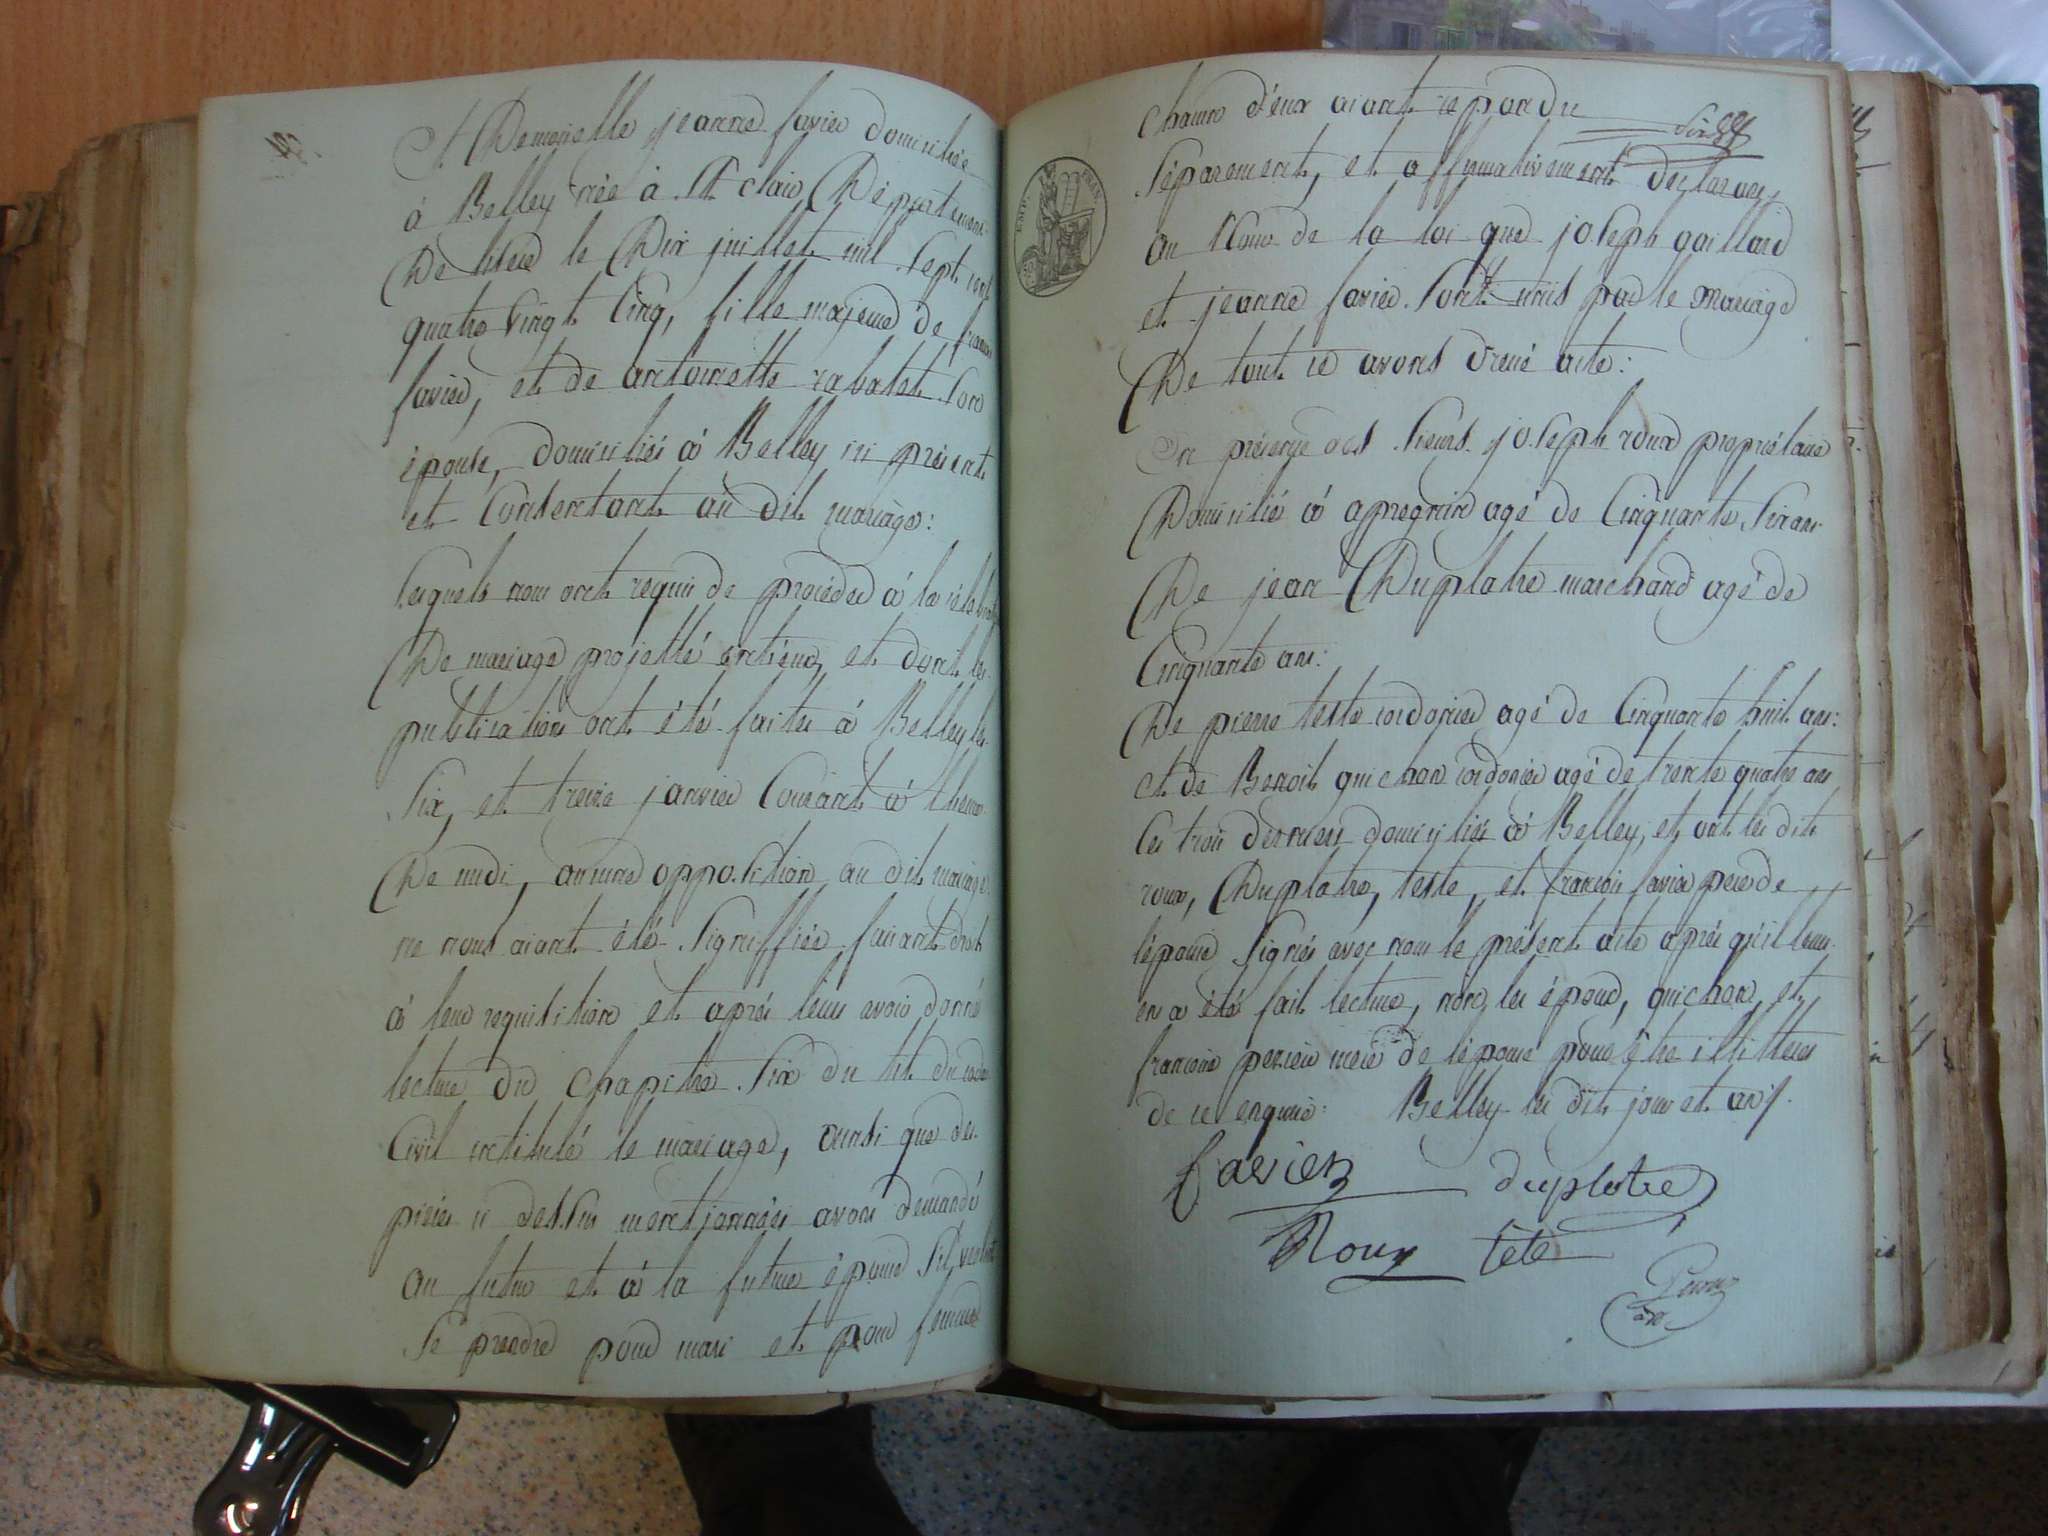 Et Demoiselle jeanne favier domiciliée
à Belley née à St clair Département
De lisere le Dix juillet mil sept cent
quatre vingt Cinq, fille majeure de françois
favier, et de antoinette rabatet son
épouse, domiciliés à Belley ici présents
et Consentant au dit mariage:
lesquels nous ont requis de procéder à la célébration
De mariage projetté entreux, et dont les
publications ont été faites à Belley les
Six, et treize janvier Courant à lheure
De midi, aucune opposition au dit mariage
ne nous aiant été Signiffiée faisant droit
à leur requisition et après leurs avoir donné
lecture du chapitre Six du tit. du code
Civil intitulé le mariage, ainsi que des
pièces ci dessus mentionnées avons demandé
au futur et à la future épouse S'il veulent
Se prendre pour mari et pour femme
chacun d'eux aiant repondu
Séparement, et affirmativement declarons
au Nom de la loi que joseph gaillard
et jeanne favier sont unis par le mariage
De tout ce avons dressé acte:
En présence des Sieurs joseph roux propriétaire
Domicilié à apregnin agé de Cinquante Six ans
De jean Duplatre marchand agé de
Cinquante ans:
De pierre teste cordonier agé de Cinquante huit ans:
et de Benoit guichon cordonier agé de trente quatre ans
les trois derniers domiciliés à Belley, et ont les dits
roux, Duplatre, teste, et françois favier pere de
lépouse Signés avec nous le présent acte après qu'il leurs
en a été fait lecture, non les époux, guichon, et
françoise perier mere de lépoux pour être illitteres
de ce enquis: Belley les dits jour et an.
favier duplatre
Roux tete